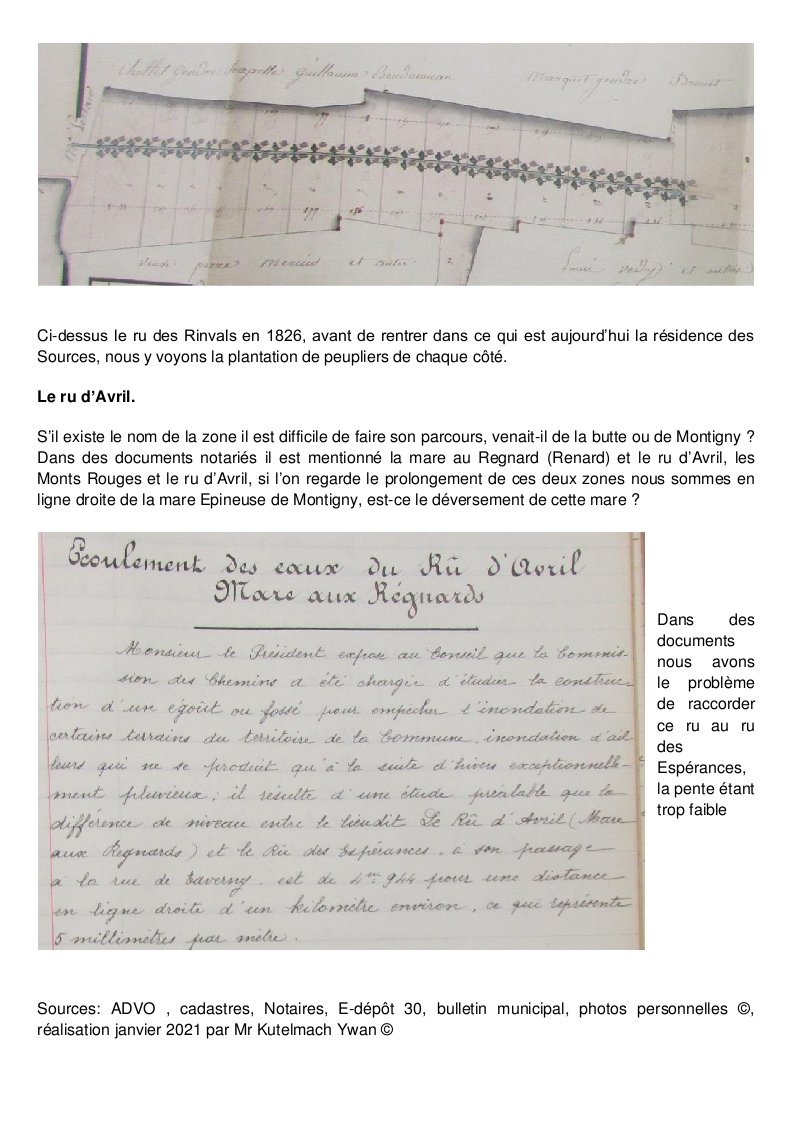 Chollet gendre Guillaume
Ci-dessus le ru des Rinvals en 1826, avant de rentrer dans ce qui est aujourd'hui la résidence des
Sources, nous y voyons la plantation de peupliers de chaque côté.
Le ru d'Avril.
S'il existe le nom de la zone il est difficile de faire son parcours, venait-il de la butte ou de Montigny ?
Dans des documents notariés il est mentionné la mare au Regnard (Renard) et le ru d'Avril, les
Monts Rouges et le ru d'Avril, si l'on regarde le prolongement de ces deux zones nous sommes en
ligne droite de la mare Epineuse de Montigny, est-ce le déversement de cette mare ?
Ecoulement des eaux du Rû d'Avril
Mare aux Régnards
Monsieur le Président expose au Conseil que la Commis-
sion des Chemins a été chargée d'étudier la construc-
tion d'un égoût ou fossé pour empêcher l'inondation de
certains terrains du territoire de la Commune, inondation d'ail-
leurs qui ne se produit qu'à la suite d'hivers exceptionnelle-
ment pluvieux ; il résulte d'une étude préalable que la
différence de niveau entre le lieudit Le Rû d'Avril (Mare
aux Regnards) et le Rû des Espérances, à son passage
à la rue de Taverny, est de 4m 944 pour une distance
en ligne droite d'un kilomètre environ, ce qui représente
5 millimètres par mètre.
Dans des
documents
nous avons
le problème
de raccorder
ce ru au ru
des
Espérances,
la pente étant
trop faible
Sources: ADVO , cadastres, Notaires, E-dépôt 30, bulletin municipal, photos personnelles ©,
réalisation janvier 2021 par Mr Kutelmach Ywan ©